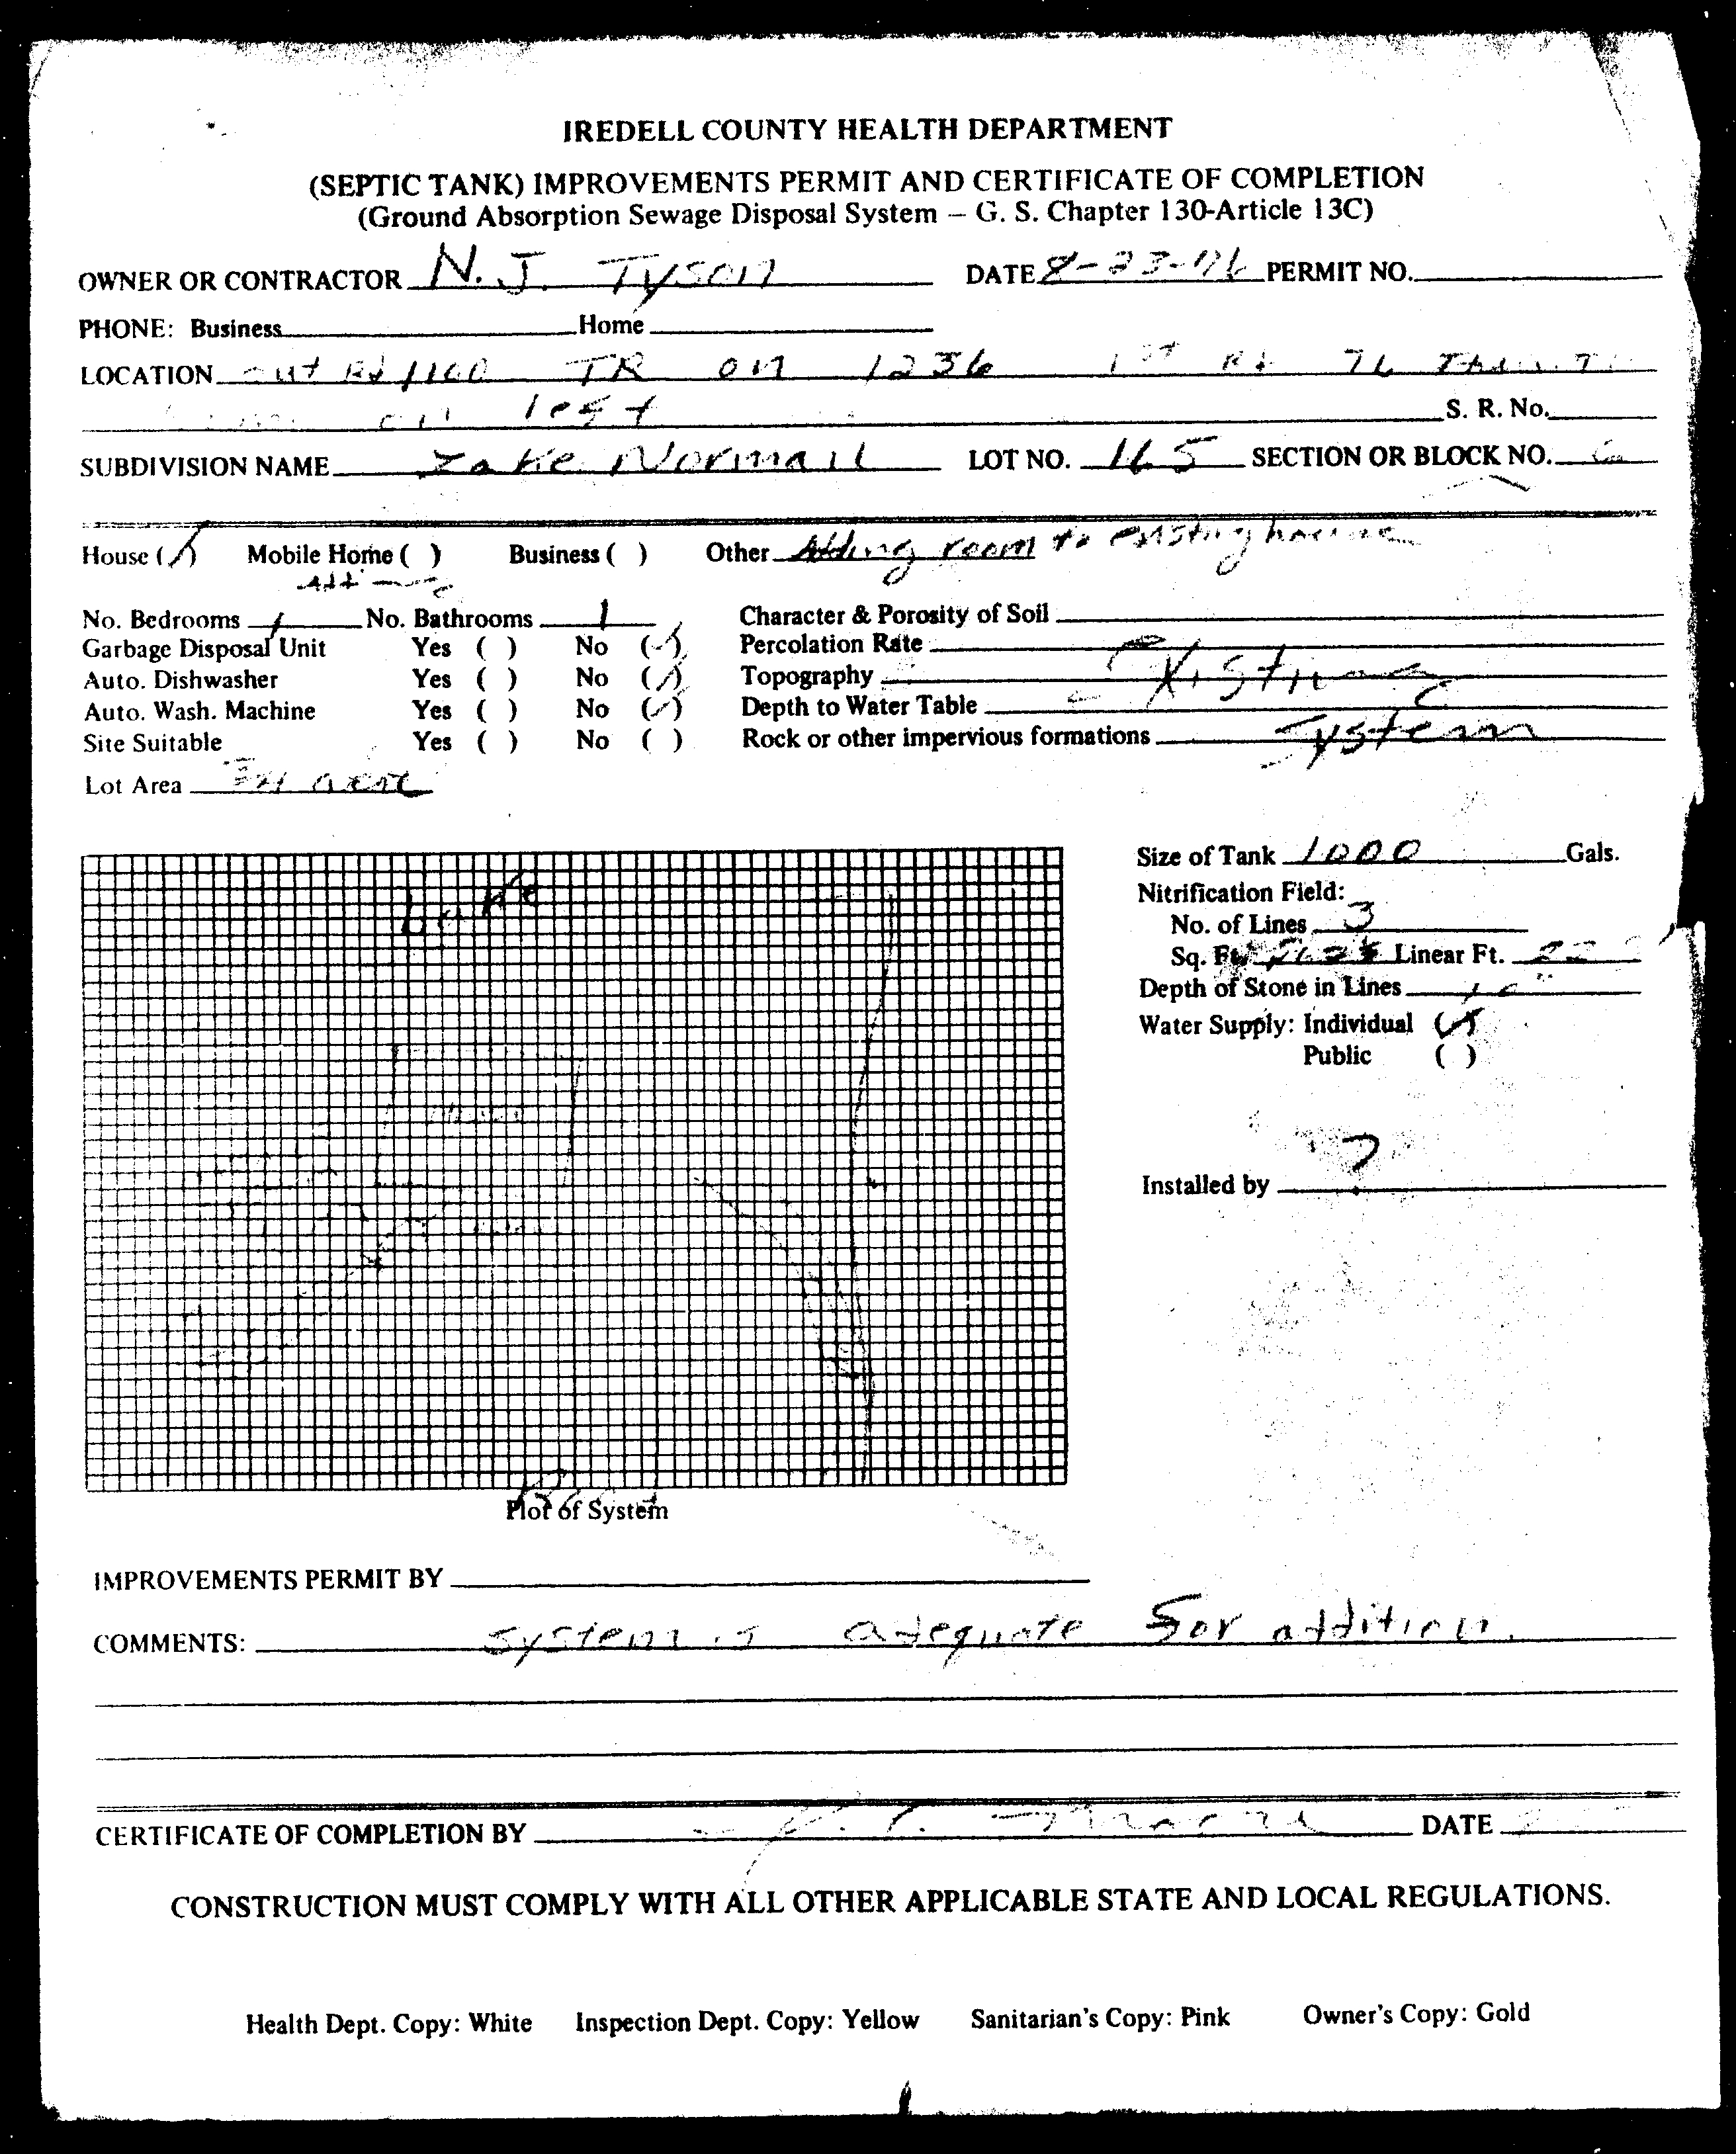 IREDELL COUNTY HEALTH DEPARTMENT
(SEPTIC TANK) IMPROVEMENTS PERMIT AND CERTIFICATE OF COMPLETION
(Ground Absorption Sewage Disposal System – G. S. Chapter 130-Article 13C)
OWNER OR CONTRACTOR N. J. Tyson DATE 8-23-76 PERMIT NO.
PHONE: Business Home
LOCATION out Rd 1100 TR on 1236 1st Rd
on left S. R. No.
SUBDIVISION NAME Lake Norman LOT NO. 165 SECTION OR BLOCK NO.
House (✓) Mobile Home ( ) Business ( ) Other Adding room to existing house
Adding
No. Bedrooms 1 No. Bathrooms 1 Character & Porosity of Soil
Garbage Disposal Unit Yes ( ) No (✓) Percolation Rate
Auto. Dishwasher Yes ( ) No (✓) Topography Existing
Auto. Wash. Machine Yes ( ) No (✓) Depth to Water Table
Site Suitable Yes ( ) No ( ) Rock or other impervious formations System
Lot Area 3/4 acre
Size of Tank 1000 Gals.
Nitrification Field:
No. of Lines 3
Sq. Ft. Linear Ft.
Depth of Stone in Lines
Water Supply: Individual (✓)
Public ( )
Installed by ?
Lake
House
Plot of System
IMPROVEMENTS PERMIT BY
COMMENTS: System is adequate for addition.
CERTIFICATE OF COMPLETION BY DATE
CONSTRUCTION MUST COMPLY WITH ALL OTHER APPLICABLE STATE AND LOCAL REGULATIONS.
Health Dept. Copy: White Inspection Dept. Copy: Yellow Sanitarian's Copy: Pink Owner's Copy: Gold